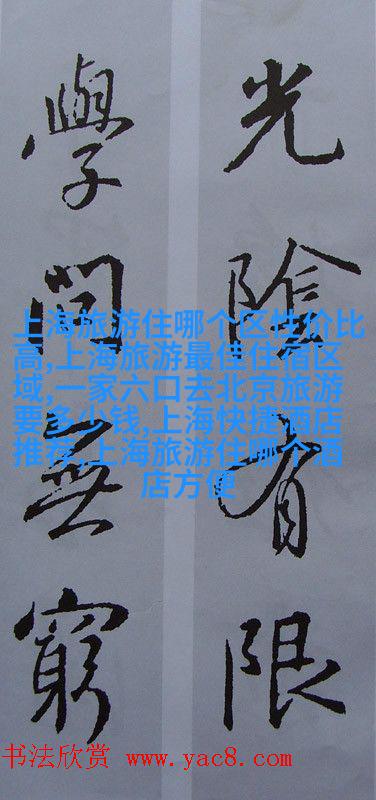 光陰有限
學問無窮
上海旅游住哪个区性价比
高,上海旅游最佳住宿区
域,一家六口去北京旅游
要多少钱,上海快捷酒店
推荐,上海旅游住哪个酒
店方便
书法欣赏 www.yac8.com